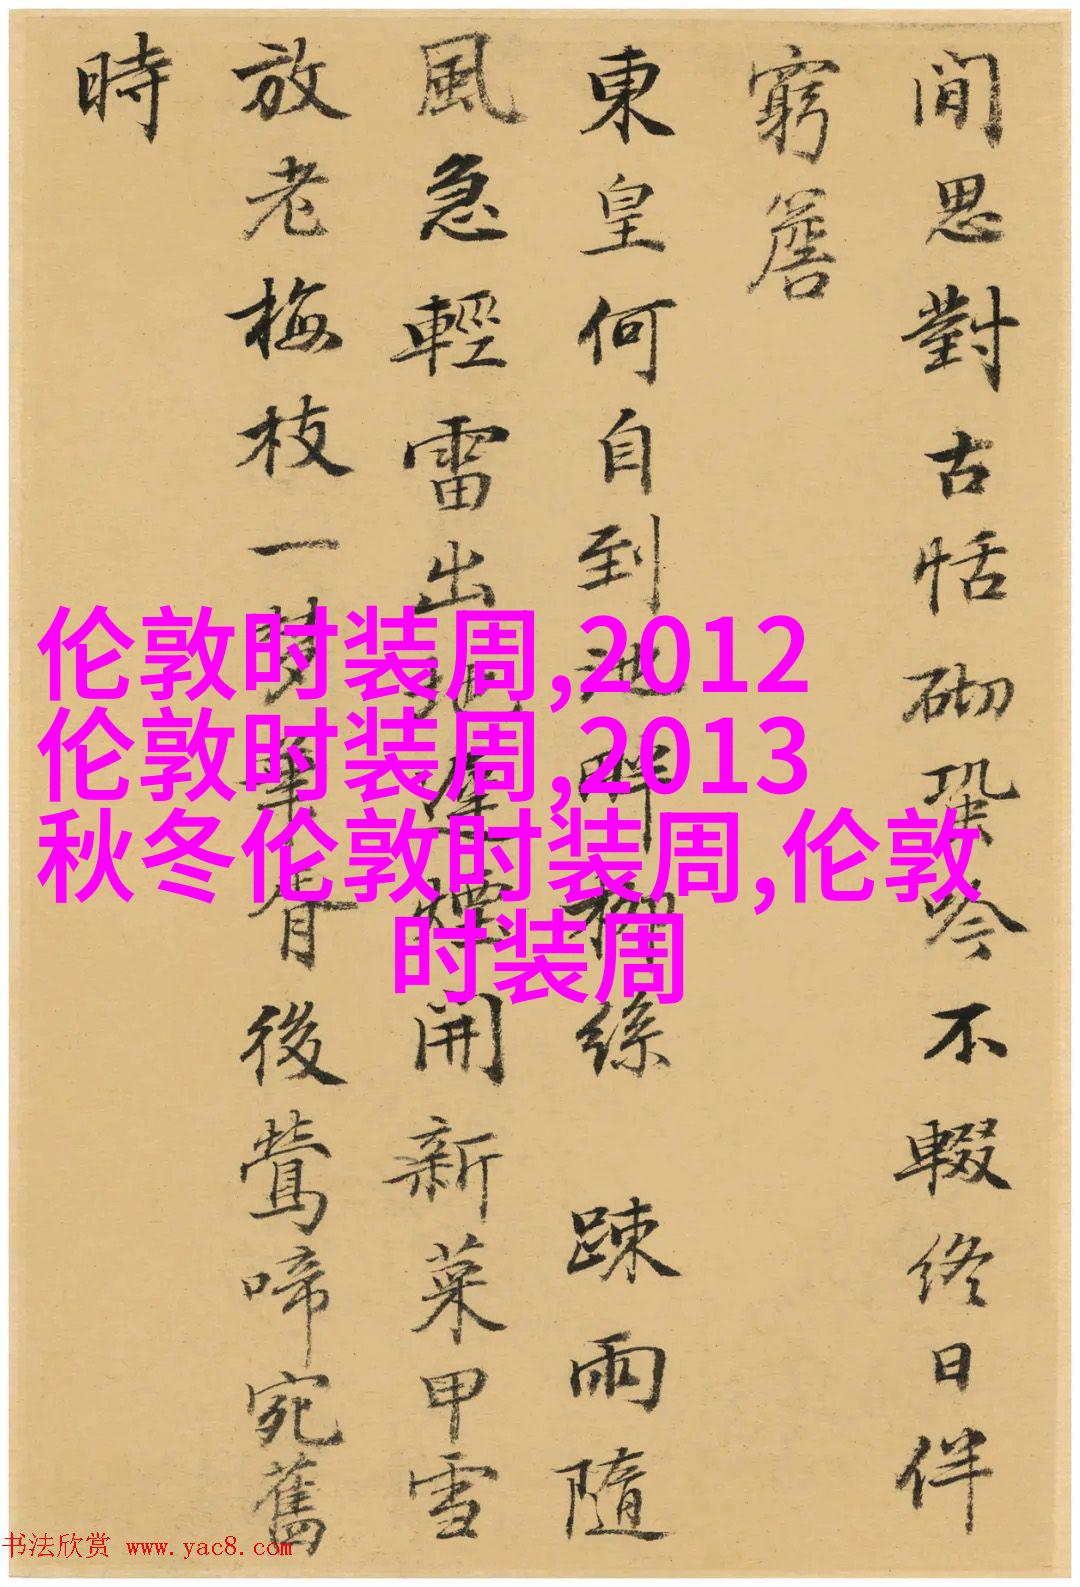 間思對古恬砌蛩吟不輟終日伴
窮簷
東皇何自到池畔柳絲 踈雨隨
風急輕雷出地遲煙開新菜甲雪
放老梅枝一夢華胥後鶯啼宛舊
時
伦敦时装周,2012
伦敦时装周,2013
秋冬伦敦时装周,伦敦
时装周
书法欣赏 www.yac8.com